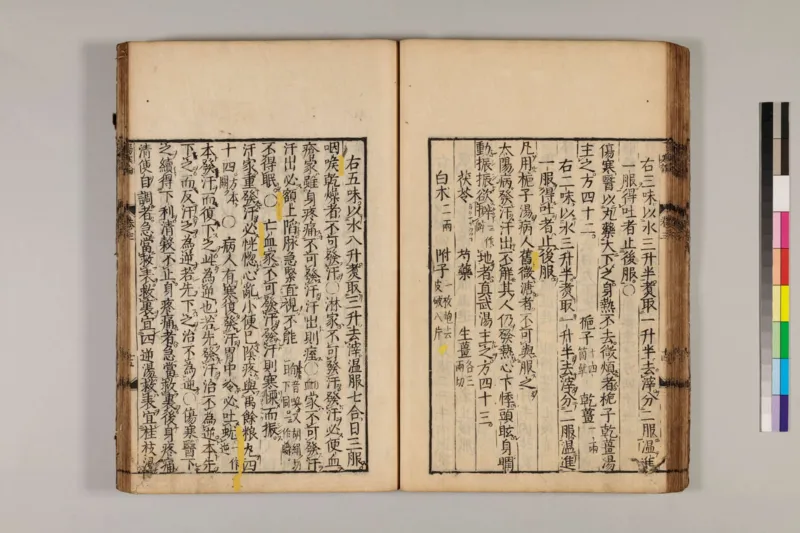 右三味以水三升半煑取一升半去滓分二服温進
一服得吐者止後服〇
傷寒醫以丸藥大下之身熱不去微煩者梔子乾薑湯
主之方四十二
梔子十四箇擘 乾薑二兩
右二味以水三升半煑取一升半去滓分二服温進
一服得吐者止後服
凡用梔子湯病人舊微溏者不可與服之
太陽病發汗汗出不解其人仍發熱心下悸頭眩身瞤
動振振欲擗地者真武湯主之方四十三
茯苓 芍藥 生薑各三兩切
白朮二兩 附子一枚炮去皮破八片
右五味以水八升煑取三升去滓温服七合日三服
咽喉乾燥者不可發汗〇淋家不可發汗發汗必便血
瘡家雖身疼痛不可發汗汗出則痓〇衄家不可發汗
汗出必額上陷脉急緊直視不能眴
不得眠〇亡血家不可發汗發汗則寒慄而振
汗家重發汗必恍惚心亂小便已陰疼與禹餘粮丸四
十四方本闕〇病人有寒復發汗胃中冷必吐蚘
本發汗而復下之此為逆也若先發汗治不為逆本先
下之而反汗之為逆若先下之治不為逆〇傷寒醫下
之續得下利清穀不止身疼痛者急當救裏後身疼痛
清便自調者急當救表救裏宜四逆湯救表宜桂枝湯